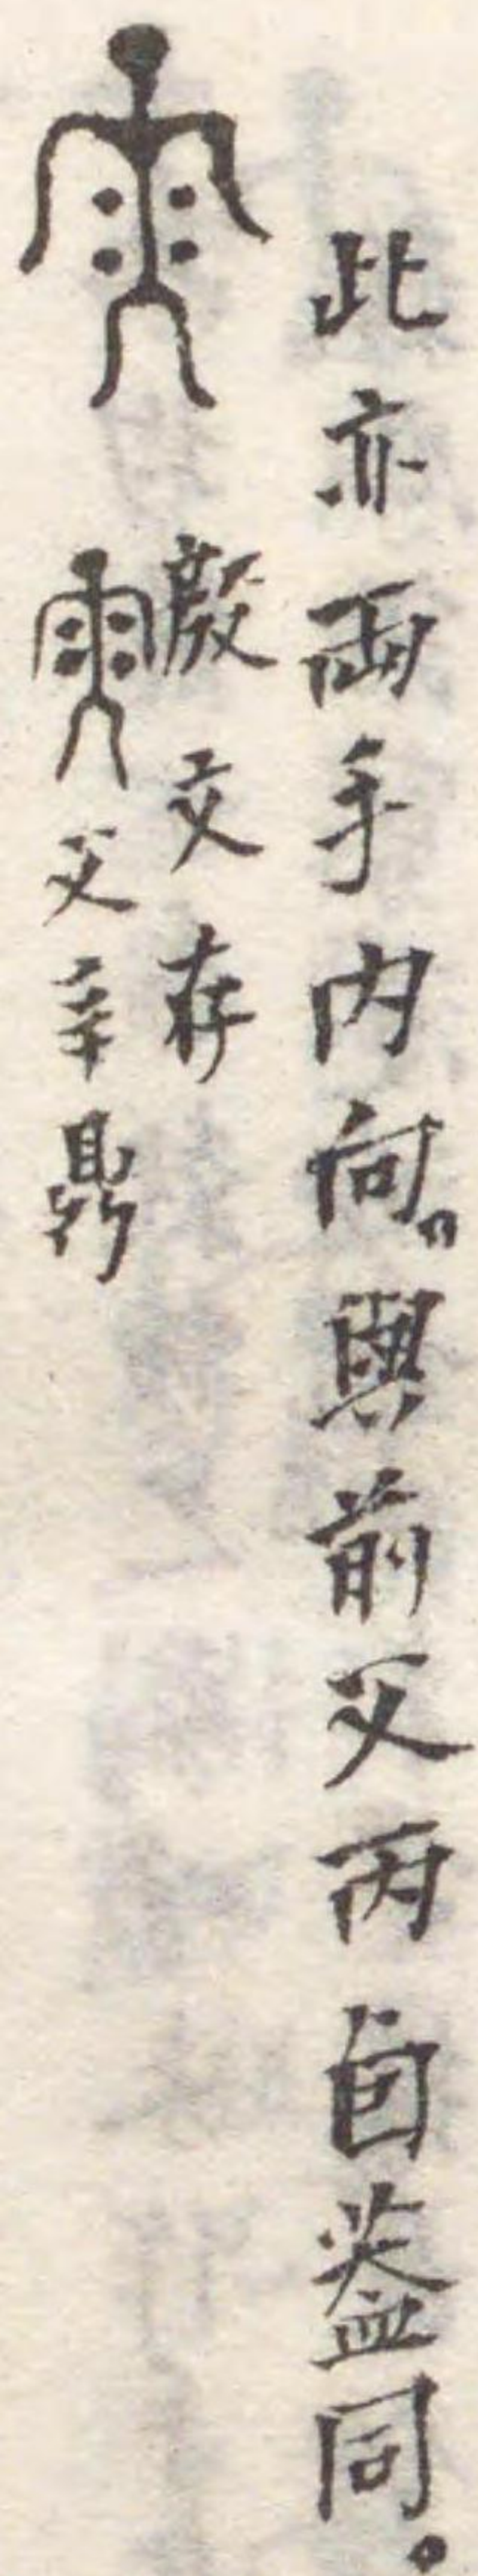 此亦兩手内向。與前父丙卣蓋同。
殷文存
父辛鼎